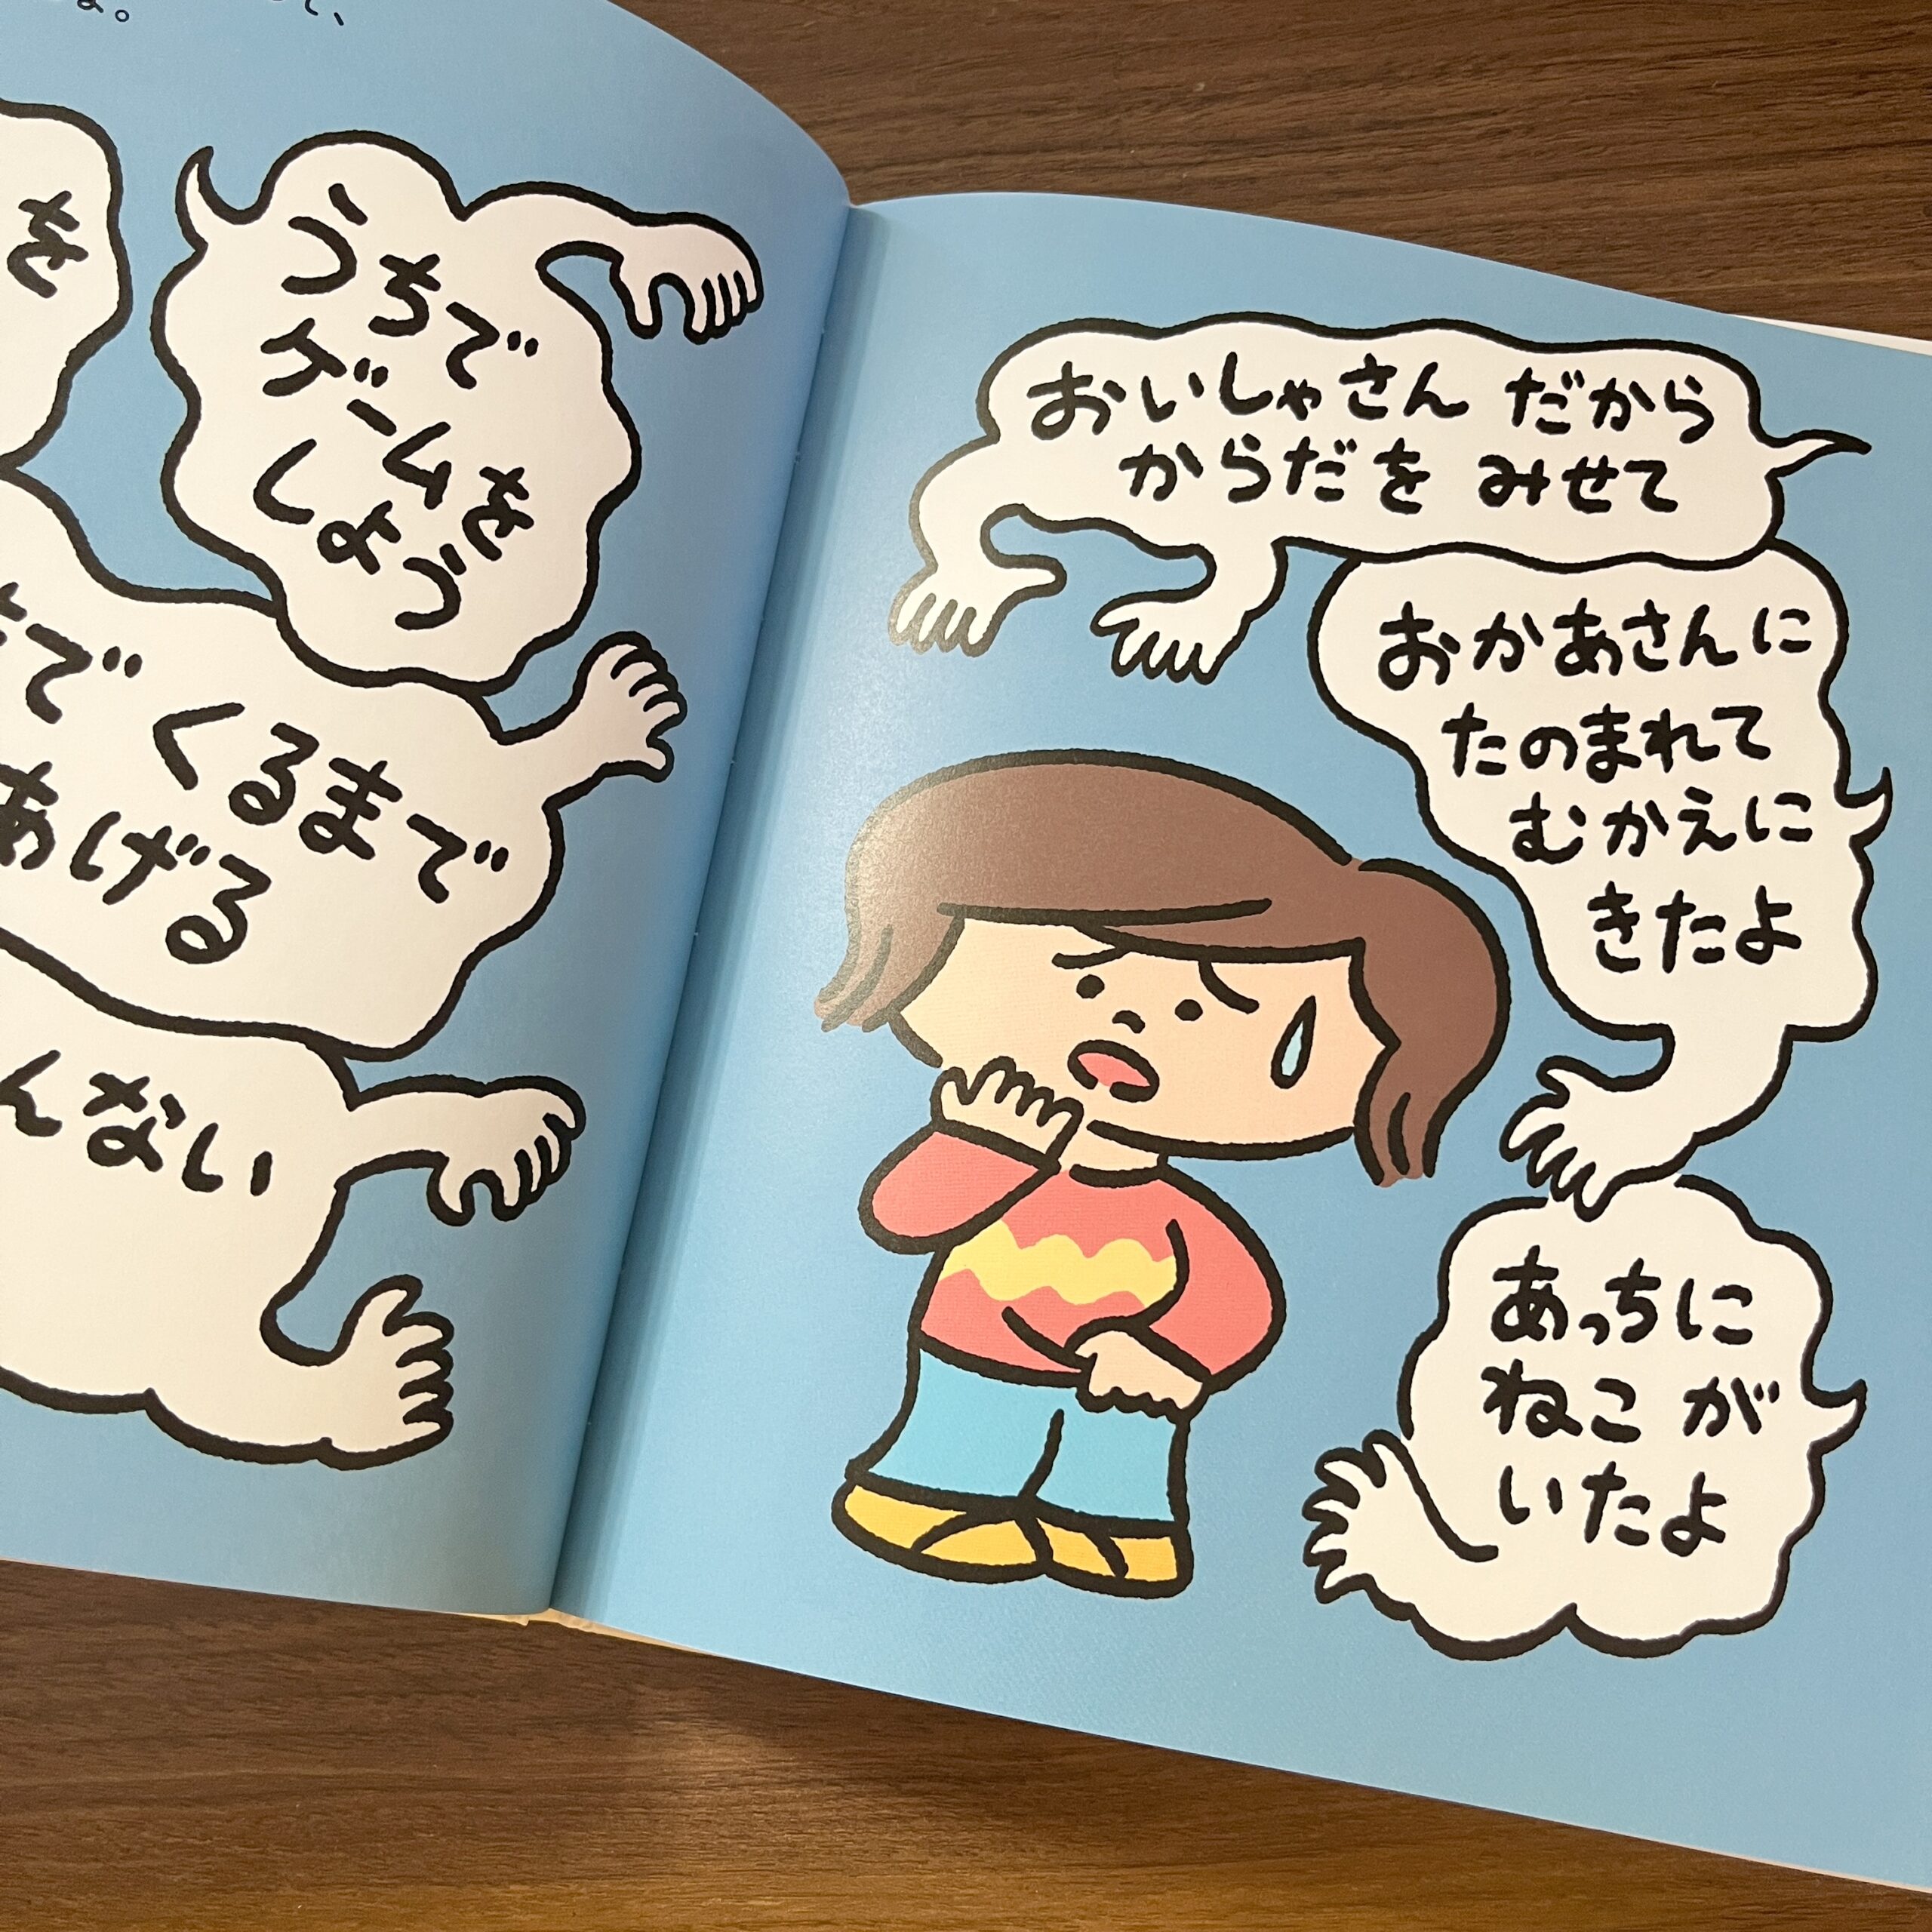 を
うちで
ゲームを
しよう
で くるまで
あげる
んない
おいしゃさん だから
からだを みせて
おかあさんに
たのまれて
むかえに
きたよ
あっちに
ねこ が
いたよ